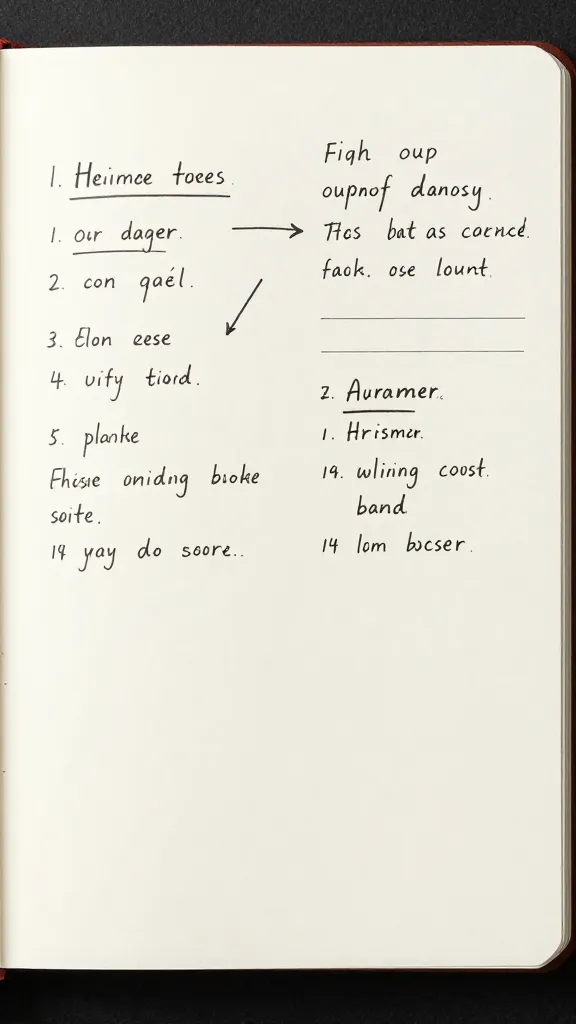 1. Heiimce toees.
1. our dager.
2. con qaél.
3. Elon eese
4. uify tiord.
5. planke
oniding booke
soite.
19 yay do soore..
Figh oup
oupnof danosy.
Thos bat as
faok. ose lount.
2. Auramer.
1. Hrismer.
19. wliring coost.
band
14 lom bocser.